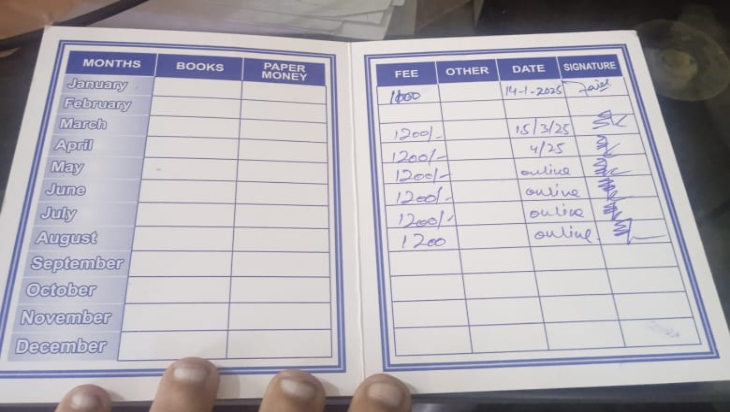 MONTHS BOOKS PAPER MONEY FEE OTHER DATE SIGNATURE
January 1000 14-1-2025
February
March 1200/- 15/3/25
April 1200/- 4/25
May 1200/- online
June 1200/- online
July 1200/- online
August 1200 online
September
October
November
December